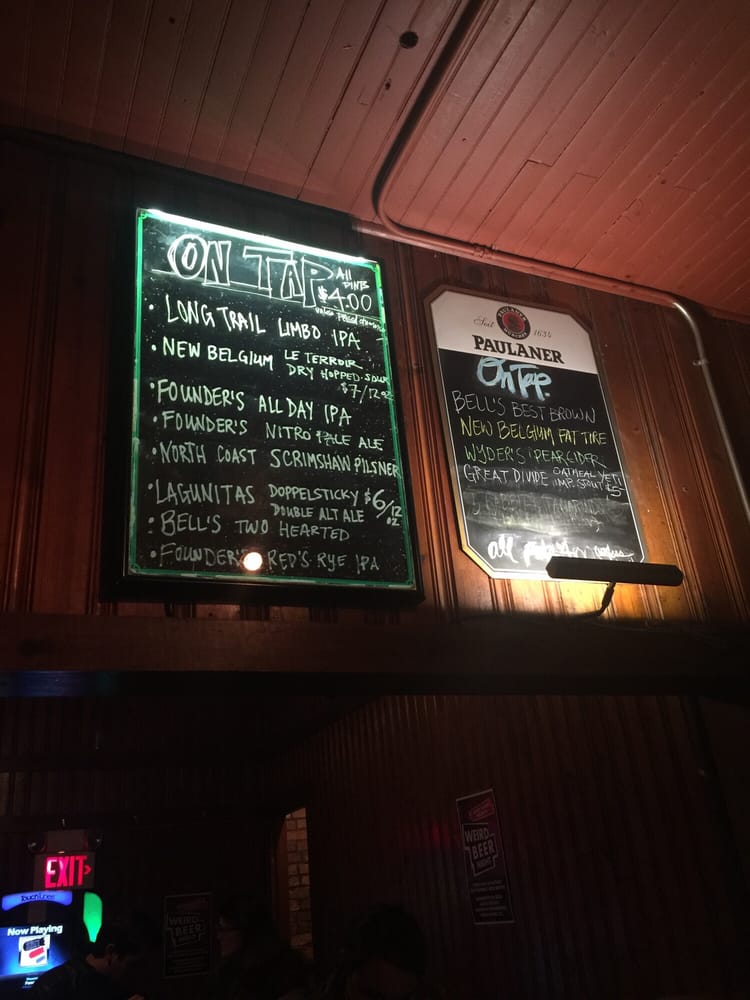 ON TAP
All
PINTS
$4.00
unless
• LONG TRAIL LIMBO IPA
• NEW BELGIUM LE TERROIR
DRY HOPPED SOUR
$7/12oz
• FOUNDER'S ALL DAY IPA
• FOUNDER'S NITRO PALE ALE
• NORTH COAST SCRIMSHAW PILSNER
• LAGUNITAS DOPPELSTICKY $6/12
DOUBLE ALT ALE oz
• BELL'S TWO HEARTED
• FOUNDER'S RED'S RYE IPA
Seit 1634
PAULANER
On Tap
BELL'S BEST BROWN
NEW BELGIUM FAT TIRE
WYDER'S PEAR CIDER
GREAT DIVIDE OATMEAL YETI
IMP. STOUT $5
all
EXIT
TouchTunes
Now Playing
WEIRD
BEER
NIGHT
WEIRD
BEER